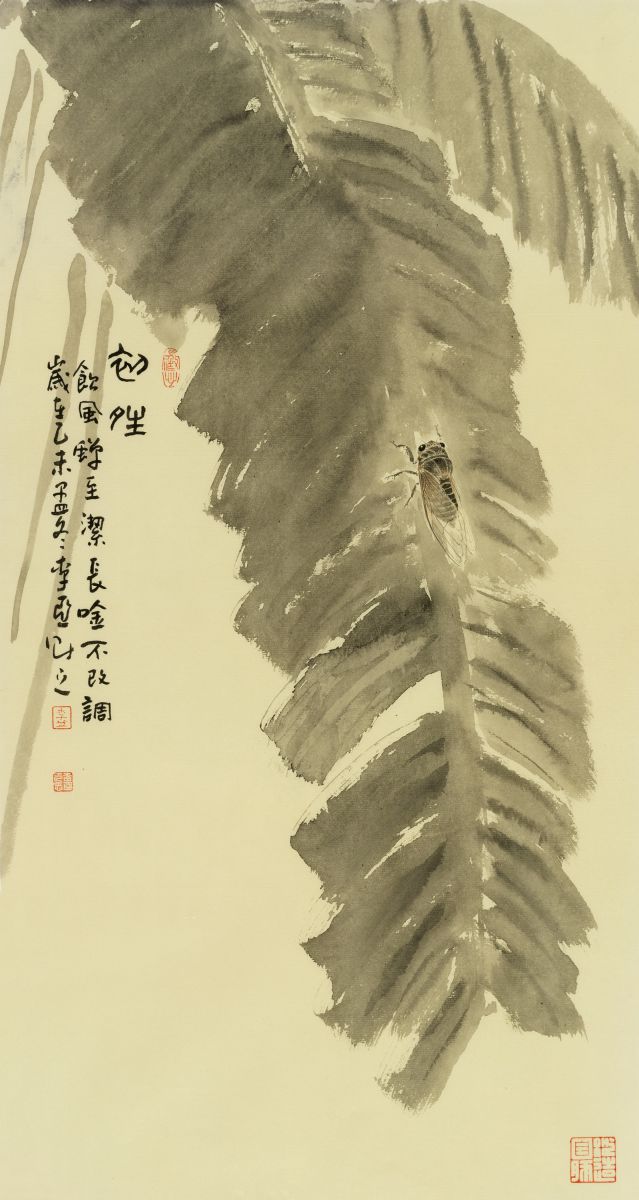 初
飲風蟬至潔長吟不改調
歲在乙未孟冬李亞